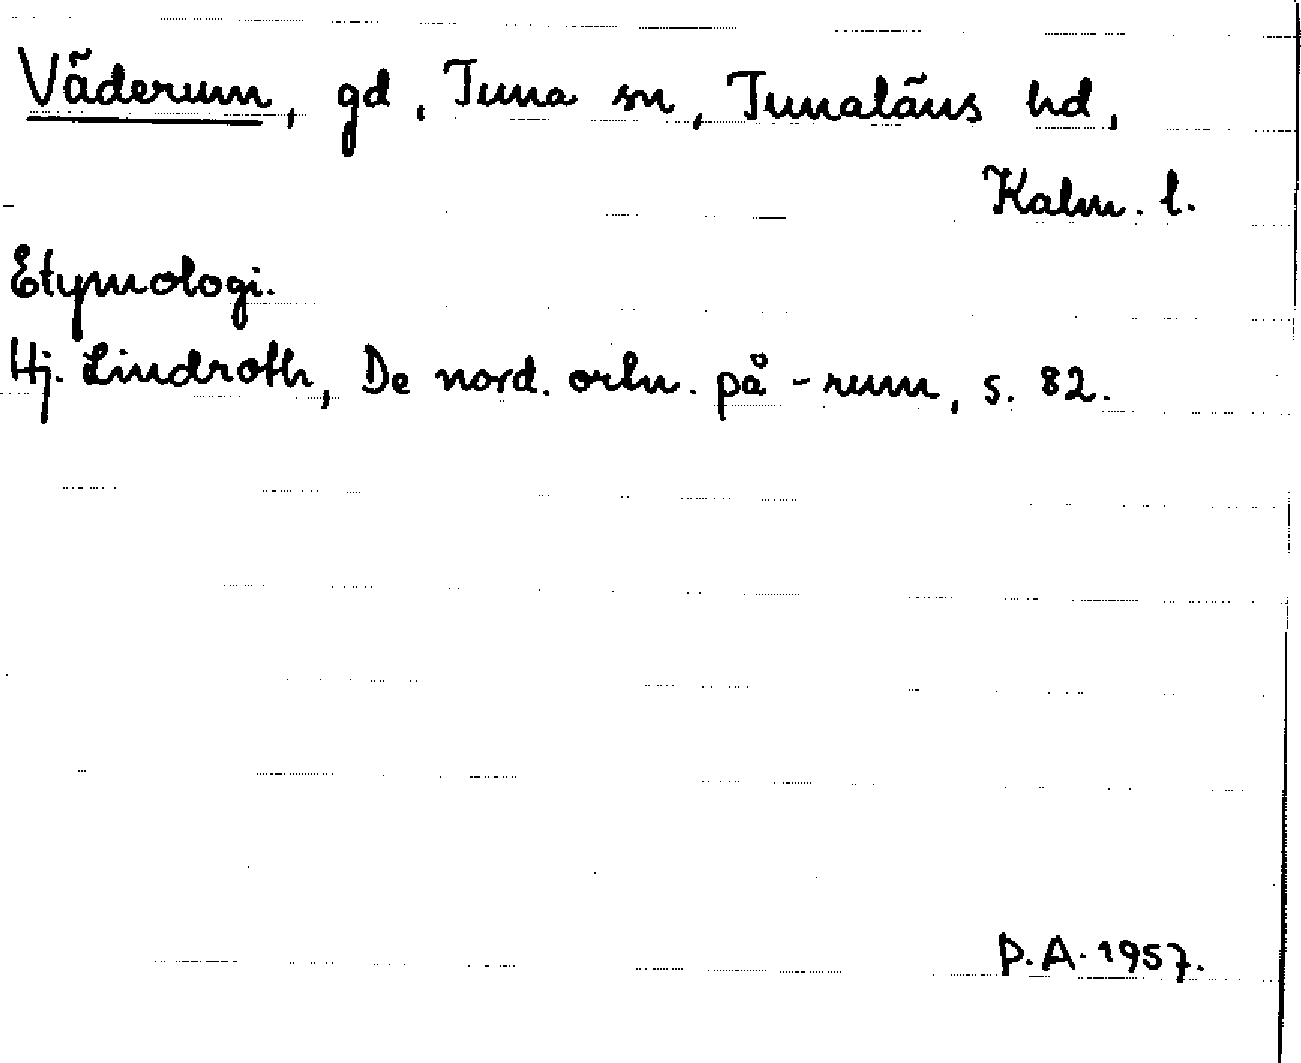 Väderum, gd, Tuna sn, Tunaläns hd,
Kalm. l.
Etymologi.
Hj. Lindroth, De nord. ortn. på -rum, s. 82.
P.A. 1957.